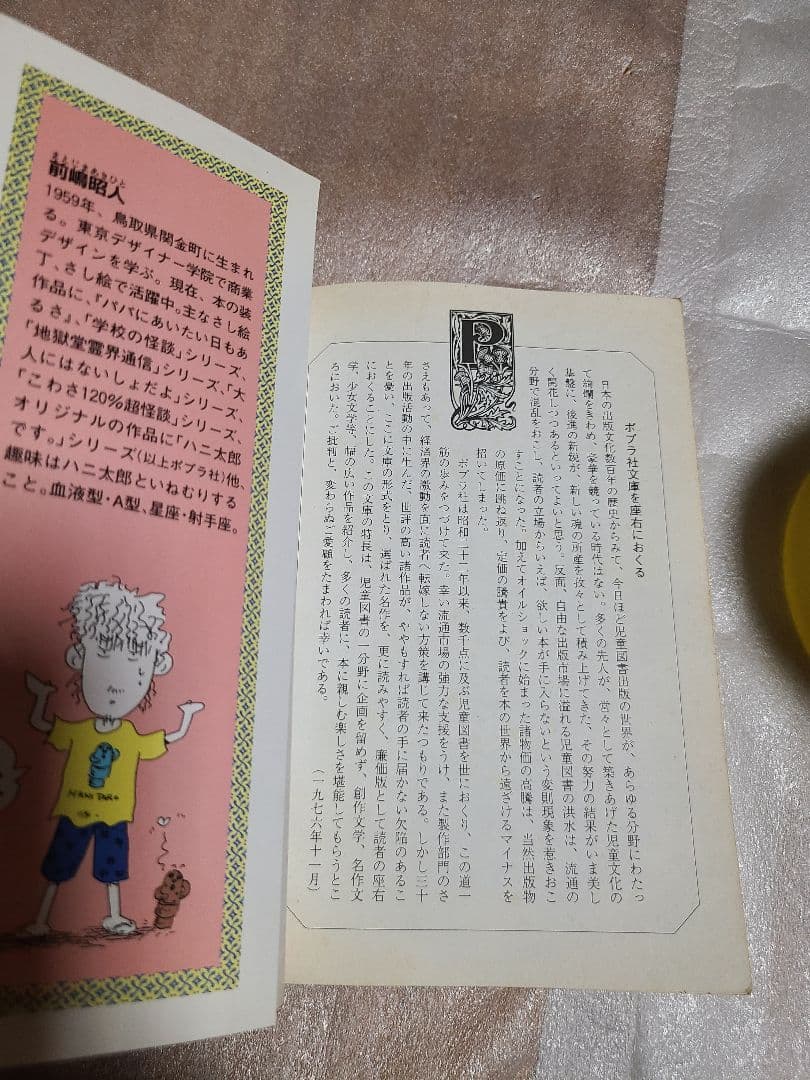 まえじまあきひと
前嶋昭人
1959年、鳥取県関金町に生まれ
る。東京デザイナー学院で商業
デザインを学ぶ。現在、本の装
丁、さし絵で活躍中。主なさし絵
作品に、『パパにあいたい日もあ
るさ』、「学校の怪談」シリーズ、
「地獄堂霊界通信」シリーズ、「大
人にはないしょだよ」シリーズ、
「こわさ120%超怪談」シリーズ、
オリジナルの作品に「ハニ太郎
です。」シリーズ(以上ポプラ社)他、
趣味はハニ太郎といねむりする
こと。血液型・A型、星座・射手座。
HANI TARO
P
ポプラ社文庫を座右におくる
日本の出版文化数百年の歴史からみて、今日ほど児童図書出版の世界が、あらゆる分野にわたっ
て絢爛をきわめ、豪華を競っている時代はない。多くの先人が、営々として築きあげた児童文化の
基盤に、後進の新鋭が、新しい魂の所産を孜々として積み上げてきた、その努力の結果がいま美し
く開花しつつあるといってよいと思う。反面、自由な出版市場に溢れる児童図書の洪水は、流通の
分野で混乱をおこし、読者の立場からいえば、欲しい本が手に入らないという変則現象を惹きおこ
すことになった。加えてオイルショックに始まった諸物価の高騰は、当然出版物
の原価に跳ね返り、定価の騰貴をよび、読者を本の世界から遠ざけるマイナスを
招いてしまった。
ポプラ社は昭和二十二年以来、数千点に及ぶ児童図書を世におくり、この道一
筋の歩みをつづけて来た。幸い流通市場の強力な支援をうけ、また製作部門のさ
さえもあって、経済界の激動を面に読者へ転嫁しない方策を講じて来たつもりである。しかし三十
年の出版活動の中に生んだ、世評の高い諸作品が、ややもすれば読者の手に届かない欠陥のあるこ
とを憂い、ここに文庫の形式をとり、選ばれた名作を、更に読みやすく、廉価版として読者の座右
におくることにした。この文庫の特長は、児童図書の一分野に企画を留めず、創作文学、名作文
学、少女文学等、幅の広い作品を紹介し、多くの読者に、本に親しむ楽しさを堪能してもらうとこ
ろにおいた。ご批判と、変わらぬご愛顧をたまわれば幸いである。
(一九七六年十一月)